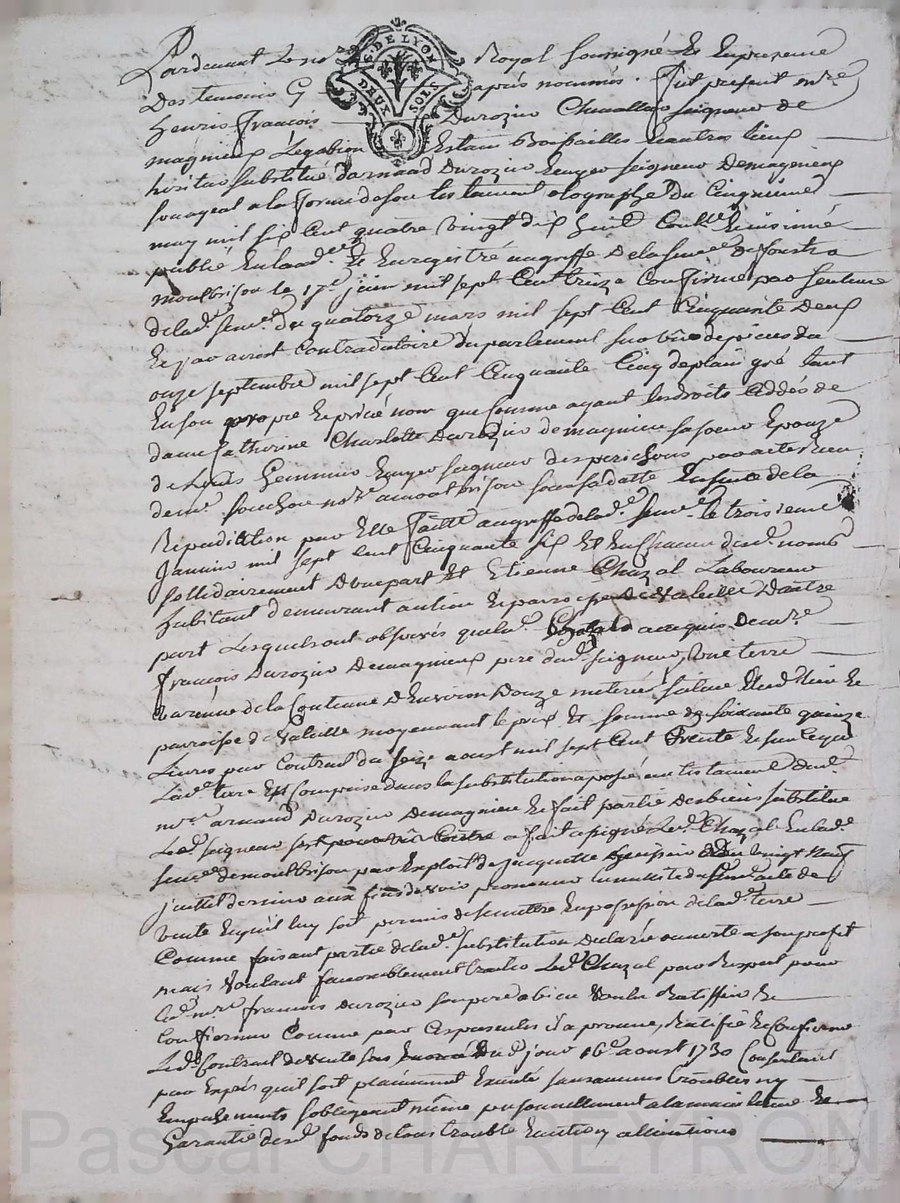 Pardevant le no.re Royal soussigné Et En presence
G.S DE LYON
DEUX SOLS
Des temoins aprés nommés. fut present m.re
henris françois Durozier Chevallier seigneur de
magnieux Estain Boisailles Et autres lieux
substitué d'arnaud Durozier Ecuyer seigneur Demagnieux
son ayeul a la forme de son testament olographe du Cinquieme
may mil six Cent quatre vingt dix huit Controllé Et insinué
publié En lad. Et Enregistré au greffe De la sene.ée de
montbrison le 17.e juin mil sept Cent treize Confirmé par sentence
de lad.e sene.ée du quatorze mars mil sept Cent Cinquante Deux
Et par arrest Contradictoire du parlement sur
onze septembre mil sept Cent Cinquante Cinq de plain gré tant
En son propre Et privé nom que Comme ayant les droits Cédés de
dame Catherine Charlotte Durozier de magnieux sa soeur Epouze
de Ecuyer seigneur des perichons par acte reçu
de m.e souchon no.re a montbrison sous sa datte Ensuite de la
Repudiation par Elle faitte au greffe de lad.e sene.ée le troisieme
janvier mil sept Cent Cinquante six Et En Chacun desd. noms
sollidairement D'une part Et Etienne Chazal Laboureur
habitant demeurant au lieu Et parroisse de valeille D'autre
part Lesquels ont observés que led. Chazal a acquis de m.re
françois Durozier Demagnieux pere dud. seigneur, Une terre
varenne de la Contenue D'Environ Douze meterées située aud. lieu Et
parroisse de Valeille moyennant le prix Et somme de soixante quinze
Livres par Contrat du seize aoust mil sept Cent trente Et sur Ce que
lad.e terre Est Comprise dans la substitution aposée au testament dud.
m.re arnaud Durozier Demagnieux Et fait partie des biens substitués
Led. seigneur a fait assigner Led. Chazal En lad.e
sene.ée de montbrison par Exploit de jacquette huissier Du vingt neuf
juillet dernier aux fins de voir prononcer la nullité du susd. acte de
vente Et qu'il luy soit permis de se mettre En possession de lad.e terre
Comme faisant partie de lad.e substitution Declarée ouverte a son profit
mais voulant favorablement traiter Led. Chazal par Respect pour
led. m.re françois Durozier son pere a bien voulu Ratiffier Et
Confirmer Comme par Ces presentes il aprouve, Ratifie Et Confirme
Led. Contrat de vente sous dud. jour 16.e aoust 1730 Consentant
par Exprés qu'il soit plainement Executé sans aucuns troubles ny
Empechements s'obligeant même personnellement a la maintenue Et
Garantie dud. fonds de tous trouble Eviction allienations
Pascal CHAREYRON